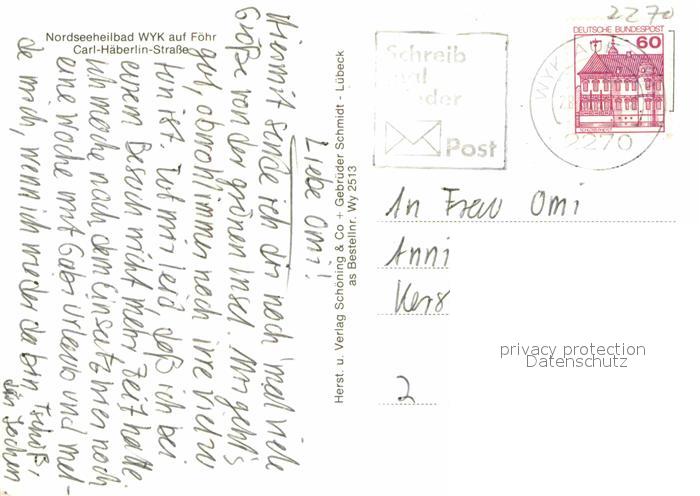 Nordseeheilbad WYK auf Föhr
Carl-Häberlin-Straße
Liebe Omi!
Hiermit sende ich dir noch 'mal viele
Grüße von der grünen Insel. Mir geht's
gut, obwohl immer noch irre viel zu
tun ist. Tut mir leid, daß ich bei
einem Besuch nicht mehr Zeit hatte.
Ich mache nach dem Einsatz hier noch
eine Woche mit Gabi Urlaub und mel-
de mich, wenn ich wieder da bin. Tschüß,
dein Jochen
Herst. u. Verlag Schöning & Co + Gebrüder Schmidt - Lübeck
as Bestellnr. Wy 2513
Schreib
mal
wieder
Post
2270
DEUTSCHE BUNDESPOST
60
WYK
2270
An Frau Omi
Anni
2
privacy protection
Datenschutz